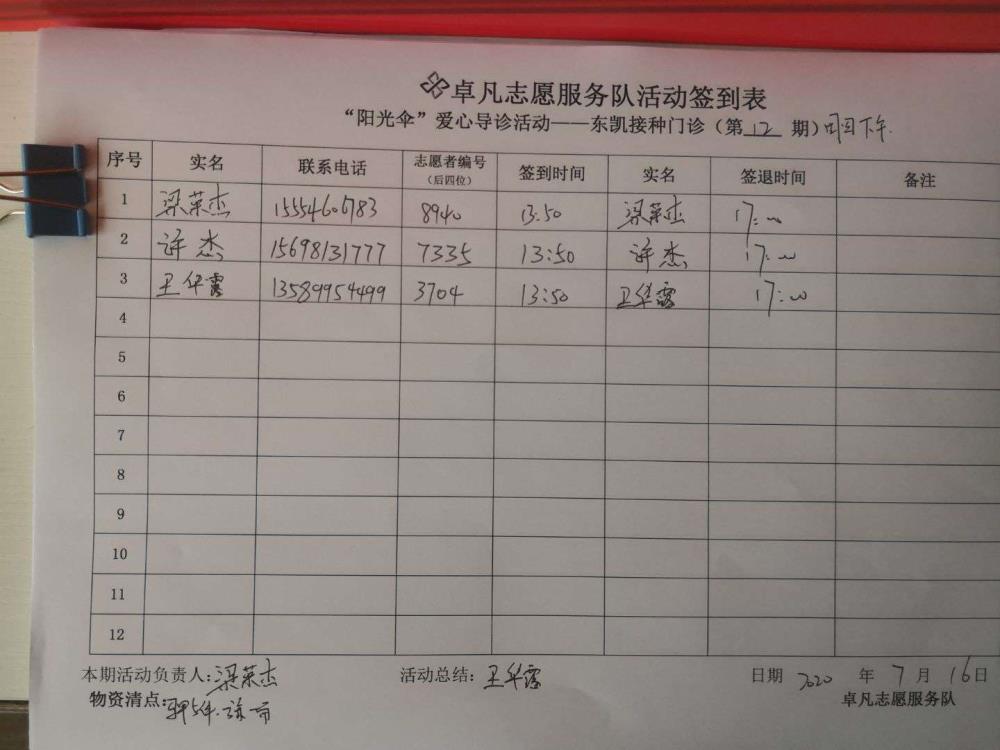 卓凡志愿服务队活动签到表
“阳光伞”爱心导诊活动——东凯接种门诊（第 12 期）周四下午
序号 实名 联系电话 志愿者编号（后四位） 签到时间 实名 签退时间 备注
1 梁荣杰 15554606783 8940 13:50 梁荣杰 17:00
2 许杰 15698131777 7335 13:50 许杰 17:00
3 王华露 13589954499 3704 13:50 王华露 17:00
4
5
6
7
8
9
10
11
12
本期活动负责人:梁荣杰 活动总结:王华露 日期 2020 年 7 月 16 日
物资清点: 卓凡志愿服务队